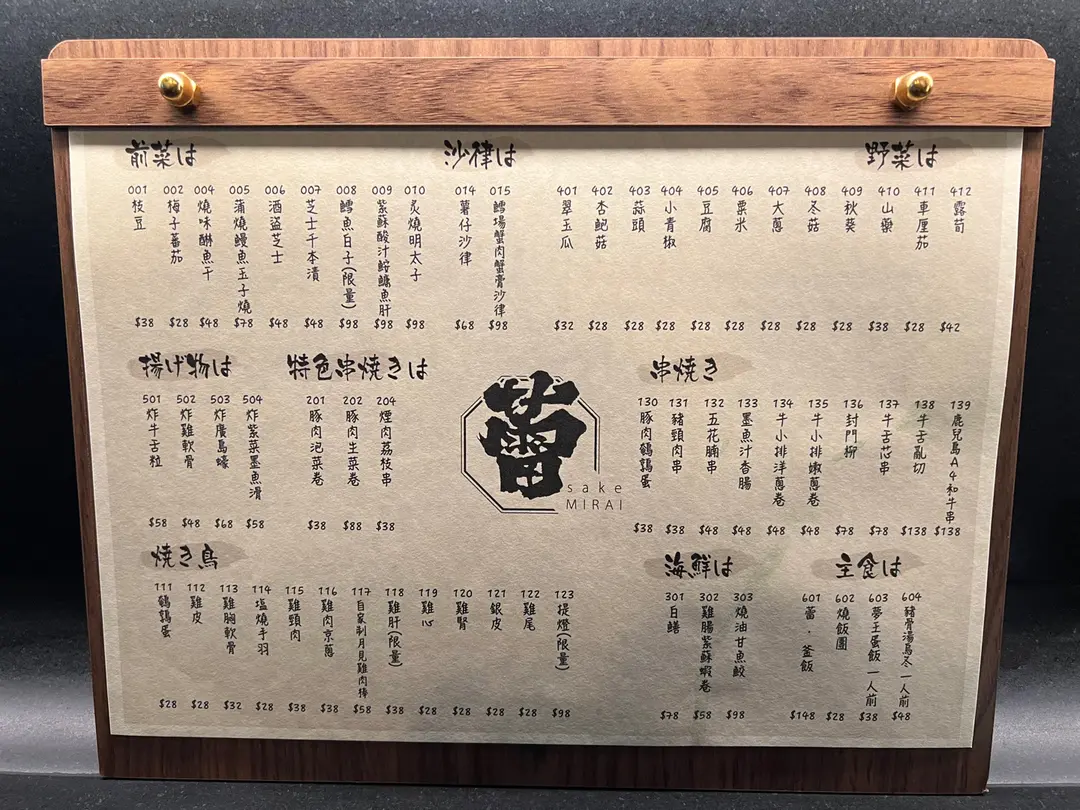 前菜は
001 枝豆 $38
002 梅子蕃茄 $28
004 燒味醂魚干 $48
005 蒲燒鰻魚玉子燒 $78
006 酒盜芝士 $48
007 芝士千本漬 $48
008 鱈魚白子(限量) $98
009 紫蘇酸汁鮟鱇魚肝 $98
010 炙燒明太子 $98
沙律は
014 薯仔沙律 $68
015 鱈場蟹肉蟹膏沙律 $98
野菜は
401 翠玉瓜 $32
402 杏鮑菇 $28
403 蒜頭 $28
404 小青椒 $28
405 豆腐 $28
406 粟米 $28
407 大蔥 $28
408 冬菇 $28
409 秋葵 $28
410 山藥 $38
411 車厘茄 $28
412 露荀 $42
揚げ物は
501 炸牛舌粒 $58
502 炸雞軟骨 $48
503 炸廣島蠔 $68
504 炸紫菜墨魚滑 $58
特色串焼きは
201 豚肉泡菜卷 $38
202 豚肉生菜卷 $88
204 煙肉荔枝串 $38
蕾
sake
MIRAI
串焼き
130 豚肉鵪鶉蛋 $38
131 豬頸肉串 $38
132 五花腩串 $48
133 墨魚汁香腸 $48
134 牛小排洋蔥卷 $48
135 牛小排嫩蔥卷 $48
136 封門柳 $78
137 牛舌芯串 $78
138 牛舌亂切 $138
139 鹿兒島A4和牛串 $138
焼き鳥
111 鵪鶉蛋 $28
112 雞皮 $28
113 雞胸軟骨 $32
114 塩燒手羽 $28
115 雞頸肉 $38
116 雞肉京蔥 $38
117 自家制月見雞肉棒 $58
118 雞肝(限量) $38
119 雞心 $28
120 雞腎 $28
121 銀皮 $28
122 雞尾 $28
123 提燈(限量) $98
海鮮は
301 白鱔 $78
302 雞腸紫蘇蝦卷 $58
303 燒油甘魚鮫 $98
主食は
601 蕾·釜飯 $148
602 燒飯團 $28
603 夢王蛋飯一人前 $38
604 豬骨湯烏冬一人前 $48